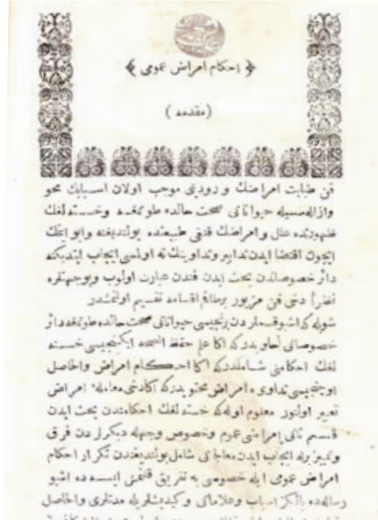 احكام امراض عمومى
(مقدمه)
فن طبابت امراضك ورودينى موجب اولان اسبابك محو
وازاله سيله حيواناتى صحت حالده طوتمغه وخسته لغك
ظهورنده علل وامراضك قنغى طبيعتده بولنديغنه
ايچون اقتضا ايدن تدابير وتداوينك نه اولمسى ايجاب ايتديكنه
دائر خصوصاتدن بحث ايدن فندن عبارت اولوب وبوجهتلره
نظراً دخى فن مزبور برطاقم اقسامه تقسيم اولنمشدر
شويله كه اشبو قسملردن برنجيسى حيواناتى صحت حالده طوتمغه دائر
خصوصاتى حاويدركه اكا علم حفظ الصحه ايكنجيسى خسته
لغك احكامنى شاملدركه اكا احكام امراض والحاصل
اوچنجيسى تداوىء امراض محتويدركه اكا دخى معاملهء امراض
تعبير اولنور معلوم اوله كه خسته لغك احكامندن بحث ايدن
قسم ثانى امراضى عموم وخصوص وجهله ديكرلردن فرق
وتمييزله ايجاب ايدن معالجاتى شامل بولنديغندن تكرار احكام
امراض عمومى ايله خصوصى به تفريق قلنمش ايسه ده اشبو
رساله ده اسباب وعلاماتى وكيديشلريله مدتلرى والحاصل